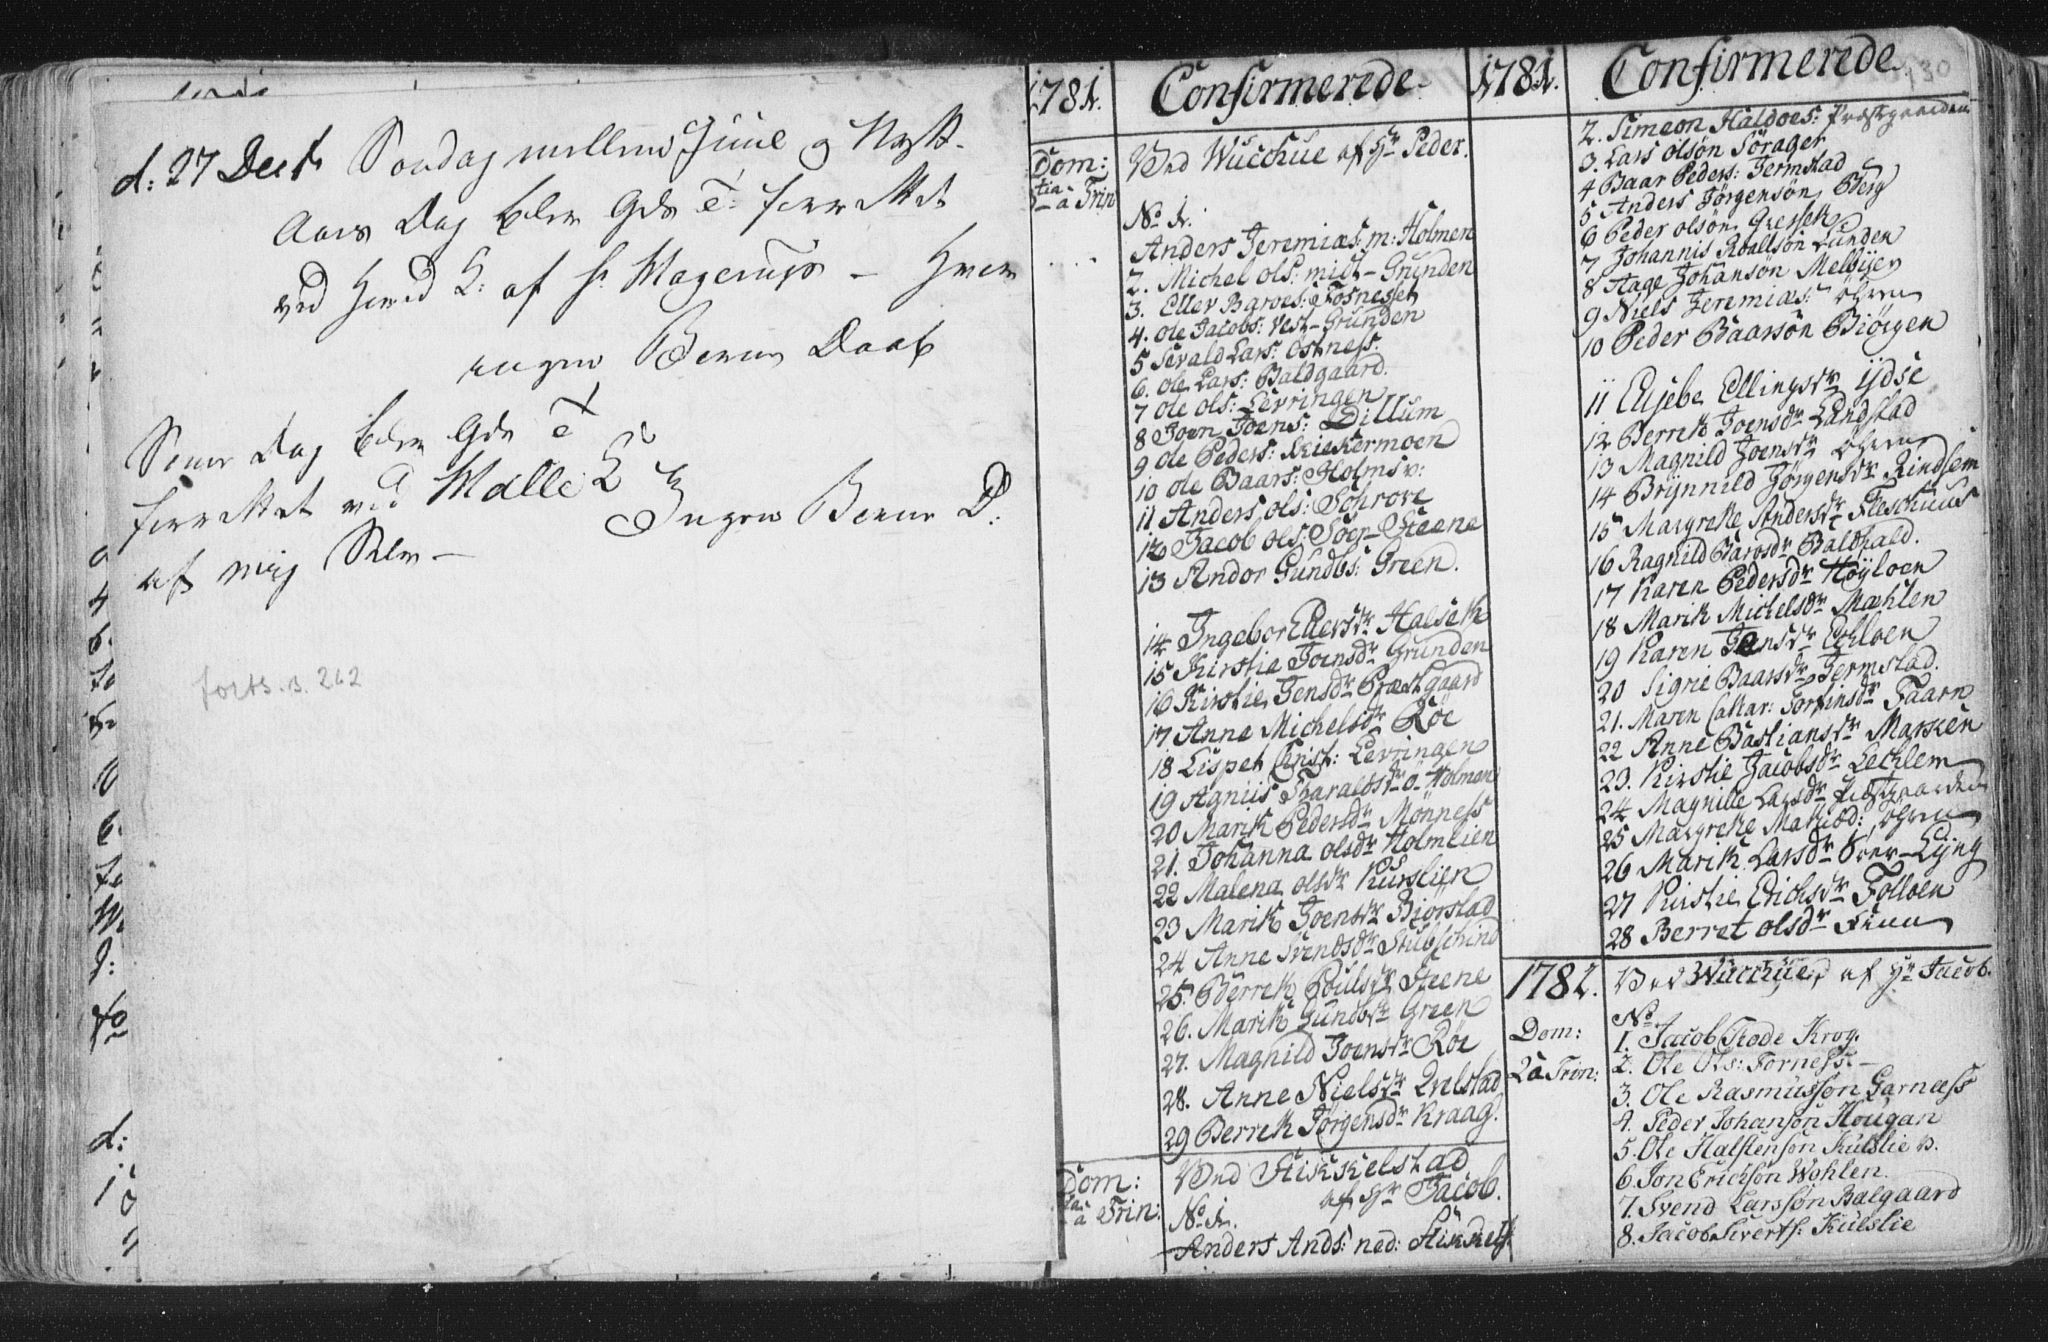 d: 27 Decbr Søndag mellem Juul og Nytt-
Aars Dag blev Gds T: forrettet
ved Hoved K: af Hr Magerups -
ingen Børne Daab
Samme Dag blev Gds T
forrettet ved Malle K
af mig Selv - Ingen Børne D:
forts. s. 262
1781. Confirmerede
Dom:
a Trin
Ved Wucchue af Hr Peder.
No 1.
Anders Jeremiæs: m: Holmen
2. Michel ols: midt-Grunden
3. Eller Baroes: Fosnesset
4. ole Jacobs: Vest-Grunden
5 Sevald Lars: Ostness
6. ole Lars: Baldgaard.
7 ole ols: Levringen
8 Joen Joens: Dillum
9 ole Peders: Kiekermoen
10 ole Baars: Holmsv:
11 Anders ols: Sohrove
12 Jacob ols: Soer-Steene
13 Andor Gundbs: Green.
14 Ingebor Ellevsdr Halsetk
15 Kirstie Joensdr Grunden
16 Kirstie Jensdr Præstgaard
17 Anne Michelsdr Röe
18 Lispet Christ: Levringen
19 Agniis Haraldsdr ö-Holmen
20 Marik Pedersdr Mönness
21. Johanna olsdr Holmlien
22 Malena olsdr Kurslien
23 Marik Joensdr Biorstad
24 Anne Svendsdr Stubschind
25. Berrek Poulsdr Steene
26. Marik Gundbsdr Green
27. Magnild Joensdr Röe
28. Anne Nielsdr Qvelstad
29 Berrek Jørgensdr Kraag.
Dom:
a Trin:
Ved Stikkelstad
af Hr Jacob.
No 1.
Anders Ands: ned: Stikkelst
1781. Confirmerede
130
2. Simeon Haldoes: Præstgaarden
3. Lars olsön Sörager
4 Baar Peders: Jermstad
5 Anders Jörgensön Berg
6 Peder olsön
7 Johannis Roallsön Lunden
8 Aage Johansön Melbyer
9 Niels Jeremiæs: Öhren
10 Peder Baarsön Biörgen
11 Elisebe Ellingsdr Ydse
12 Berrek Joensdr Landstad
13 Magnild Joensdr Öhren
14 Brynnild Jørgensdr Rindsem
15 Margreke Andersdr Fleschuus
16 Ragnild Barosdr Baldhald.
17 Karen Pedersdr Höyloen
18 Marik Michelsdr Mæhlen
19 Karen Jensdr Eckloen
20 Sigrie Baarsdr Jermstad.
21. Maren Cathar: Torfinsdr Faarn
22 Anne Bastiansdr Marsken
23. Kirstie Jacobsdr Lechlem
24 Magnille Larsdr Præstgaarden
25 Margreke Matiæd: Öhren
26 Marik Larsdr Över-Lyng
27 Kirstie Erichsdr Follven
28 Berret olsdr
1782.
Dom:
2a Trin:
Ved Wucchue af Hr Jacob.
No
1. Jacob Rode Krog.
2. Ole Ols: Forness -
3. Ole Rasmussön Garnæss
4. Peder Johansön Hougan
5. Ole Halstensön Kulslie B.
6. Jon Ericksön Wohlen.
7. Svend Larssön Balgaard
8. Jacob Siverts: Kulslie